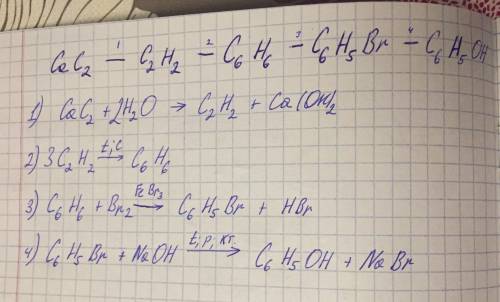 CaC₂ —¹ C₂H₂ —² C₆H₆ —³ C₆H₅Br —⁴ C₆H₅OH
1) CaC₂ + 2H₂O → C₂H₂ + Ca(OH)₂
2) 3C₂H₂ →(t, C) C₆H₆
3) C₆H₆ + Br₂ →(FeBr₃) C₆H₅Br + HBr
4) C₆H₅Br + NaOH →(t, p, кт.) C₆H₅OH + NaBr